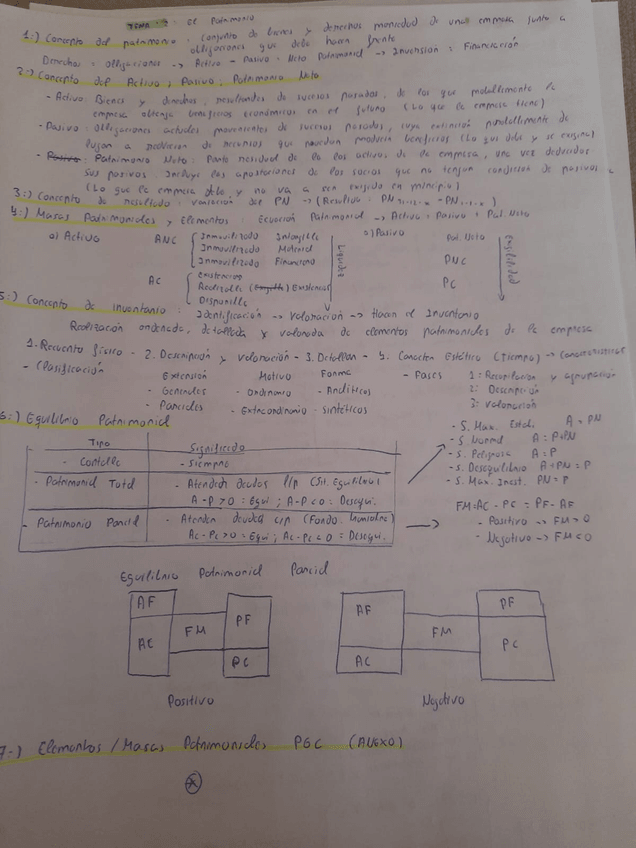 El Patrimonio
1:) Concepto del patrimonio : Conjunto de bienes y derechos moneda de una empresa junto a
obligaciones que debe hacer frente
Derechos : Obligaciones -> Activo - Pasivo = Neto Patrimonial -> Inversión = Financiación
2:) Concepto del Activo, Pasivo, Patrimonio Neto
- Activo: Bienes y derechos, resultantes de sucesos pasados, de los que probablemente la
empresa obtenga beneficios económicos en el futuro (Lo que la empresa tiene)
- Pasivo: Obligaciones actuales provenientes de sucesos pasados, cuya extinción probablemente de
lugar a de recursos que puedan producir beneficios (Lo que debe y se exigirá)
- Patrimonio Neto: Parte residual de los activos de la empresa, una vez deducidos
sus pasivos. Incluye las aportaciones de los socios que no tengan condición de pasivos
(Lo que la empresa debe y no va a ser exigido en principio)
3:) Concepto de resultado: variación del PN -> (Resultado = PN31-12-x - PN1-1-x)
4:) Masas Patrimoniales y Elementos : Ecuación Patrimonial -> Activo = Pasivo + Pat. Neto
a) Activo
ANC
Inmovilizado Intangible
Inmovilizado Material
Inmovilizado Financiero
AC
Existencias
Realizable Existencias
Disponible
Liquidez
b) Pasivo
Pat. Neto
PNC
PC
Exigibilidad
5:) Concepto de inventario : Identificación -> Valoración -> Hacer el Inventario
Realización ordenada, detallada y valorada de elementos patrimoniales de la empresa
1. Recuento físico - 2. Descripción y valoración - 3. Detallar - 4. Carácter Estático (Tiempo) -> Características
- Clasificación
Extensión
- Generales
- Parciales
Motivo
- Ordinario
- Extraordinario
Forma
- Analíticos
- Sintéticos
- Fases
1: Recopilación y agrupación
2: Descripción
3: Valoración
6:) Equilibrio Patrimonial
Tipo Significado
- Contable - Siempre
- Patrimonial Total - Atender deudas l/p (Sit. Equilibrio)
A-P>0 = Equi ; A-P<0 = Desequi.
- Patrimonio Parcial - Atender deudas c/p (Fondo Maniobra)
AC-PC>0 = Equi ; AC-PC<0 = Desequi.
- S. Max. Estab. A = PN
- S. Normal A = P+PN
- S. Peligrosa A = P
- S. Desequilibrio A+PN = P
- S. Max. Inest. PN = P
FM=AC - PC = PF - AF
- Positivo -> FM>0
- Negativo -> FM<0
Equilibrio Patrimonial Parcial
AF
AC
FM
PF
PC
Positivo
AF
AC
FM
PF
PC
Negativo
7:) Elementos/Masas Patrimoniales PGC (ANEXO)